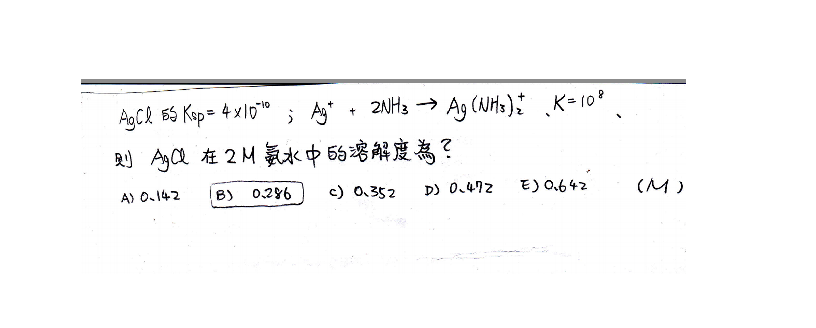 AgCl 的 Ksp = 4×10⁻¹⁰ ; Ag⁺ + 2NH₃ → Ag(NH₃)₂⁺ 、K=10⁸、
則 AgCl 在 2M 氨水中的溶解度為?
A) 0.142 B) 0.286 C) 0.352 D) 0.472 E) 0.642 (M)